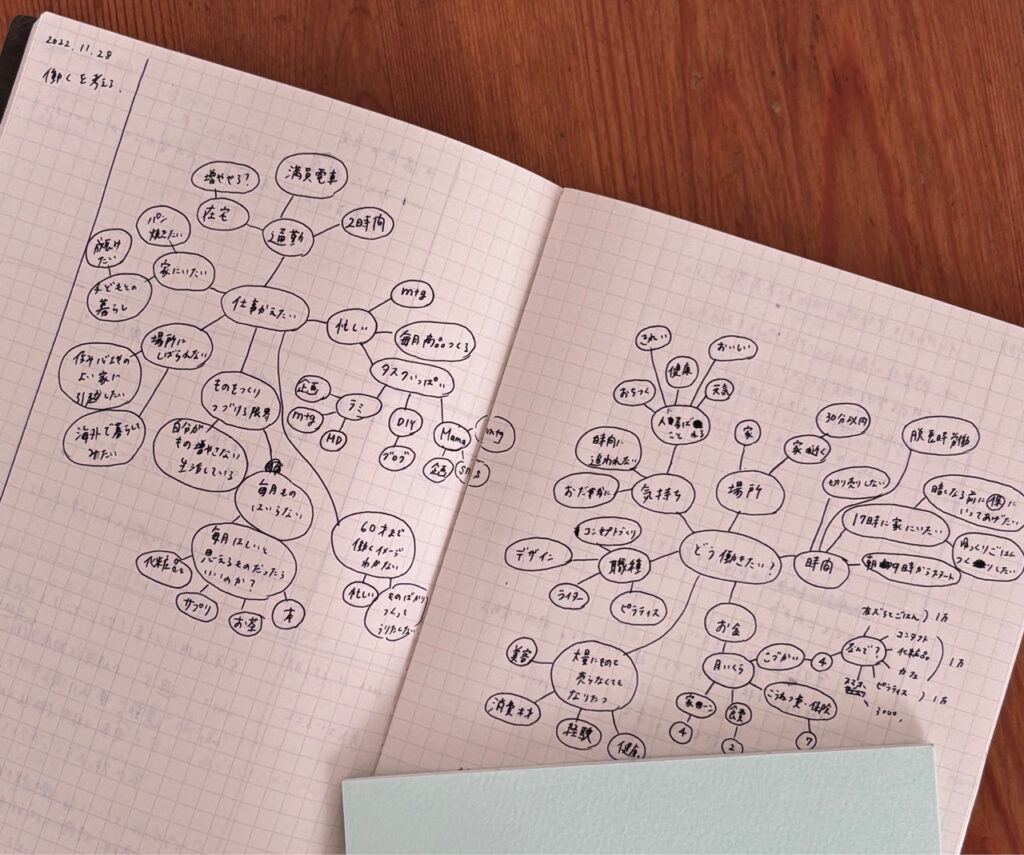 2022.11.28
働くを考える.
満員電車
増やせる?
在宅
通勤
2時間
パン
焼きたい
家にいたい
たい
子どもとの
暮らし
仕事かえたい
忙しい
mtg
毎月商品つくる
タスクいっぱい
場所に
しばられない
よい家に
引越したい
海外で暮らし
みたい
ものをつくり
つづける限界
自分が
もの増やさない
生活している
毎月もの
はいらない
毎月ほしいと
思えるものだったら
いいのか?
化粧品
サプリ
お茶
本
企画
mtg
MD
DIY
ブログ
Mama
mtg
企画
SNS
60才まで
働くイメージ
わかない
忙しい
ものばかり
つくって
うりたくない
きれい
健康
おいしい
おちつく
元気
時間に
追われない
おだやかに
気持ち
家
家近く
30分以内
場所
脱長時労働
切り売りしない
暗くなる前に保に
いってあげたい
17時に家にいたい
ゆっくりごはん
つくりたい
朝9時からスタート
時間
どう働きたい?
コンセプトづくり
デザイン
職種
ライター
ピラティス
お金
月いくら
こづかい
4
なんで?
友だちとごはん
1万
コンタクト
化粧品
カフェ
1万
ピラティス
1万
スマホ
3000,
家ローン
4
食費
2
こうねつ費・保険
7
大量にものを
売らなくても
なりたつ
美容
消費材
経験
健康